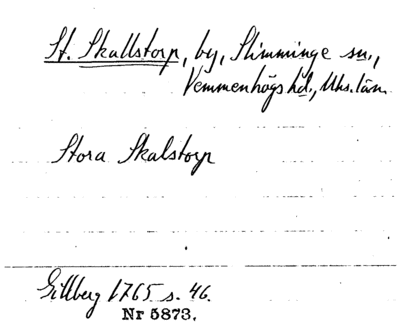 St. Skallstorp, by, Slimminge sn.,
Vemmenhögs hd., Mhs. län.
Stora Skalstorp
Gillberg 1765 s. 46.
Nr 5873.